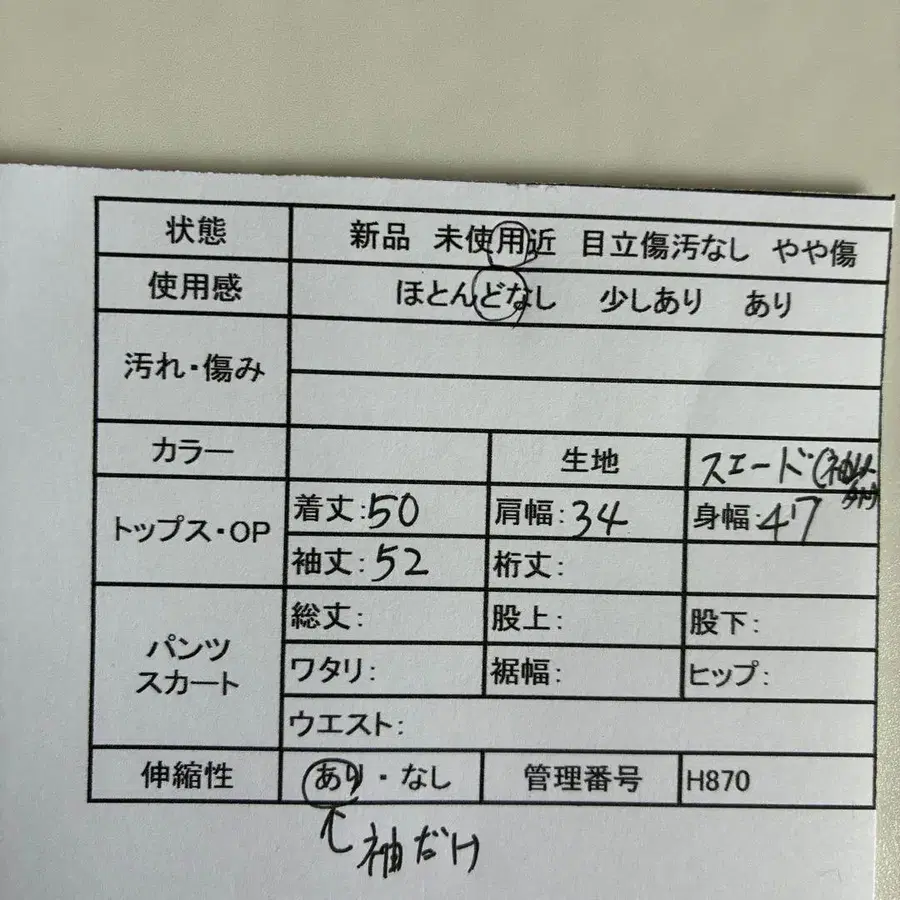 状態 新品 未使用近 目立傷汚なし やや傷
使用感 ほとんどなし 少しあり あり
汚れ・傷み
カラー 生地 スエード(袖以外)
トップス・OP
着丈:50 肩幅:34 身幅:47
袖丈:52 裄丈:
パンツ
スカート
総丈: 股上: 股下:
ワタリ: 裾幅: ヒップ:
ウエスト:
伸縮性 あり・なし 管理番号 H870
↑袖だけ